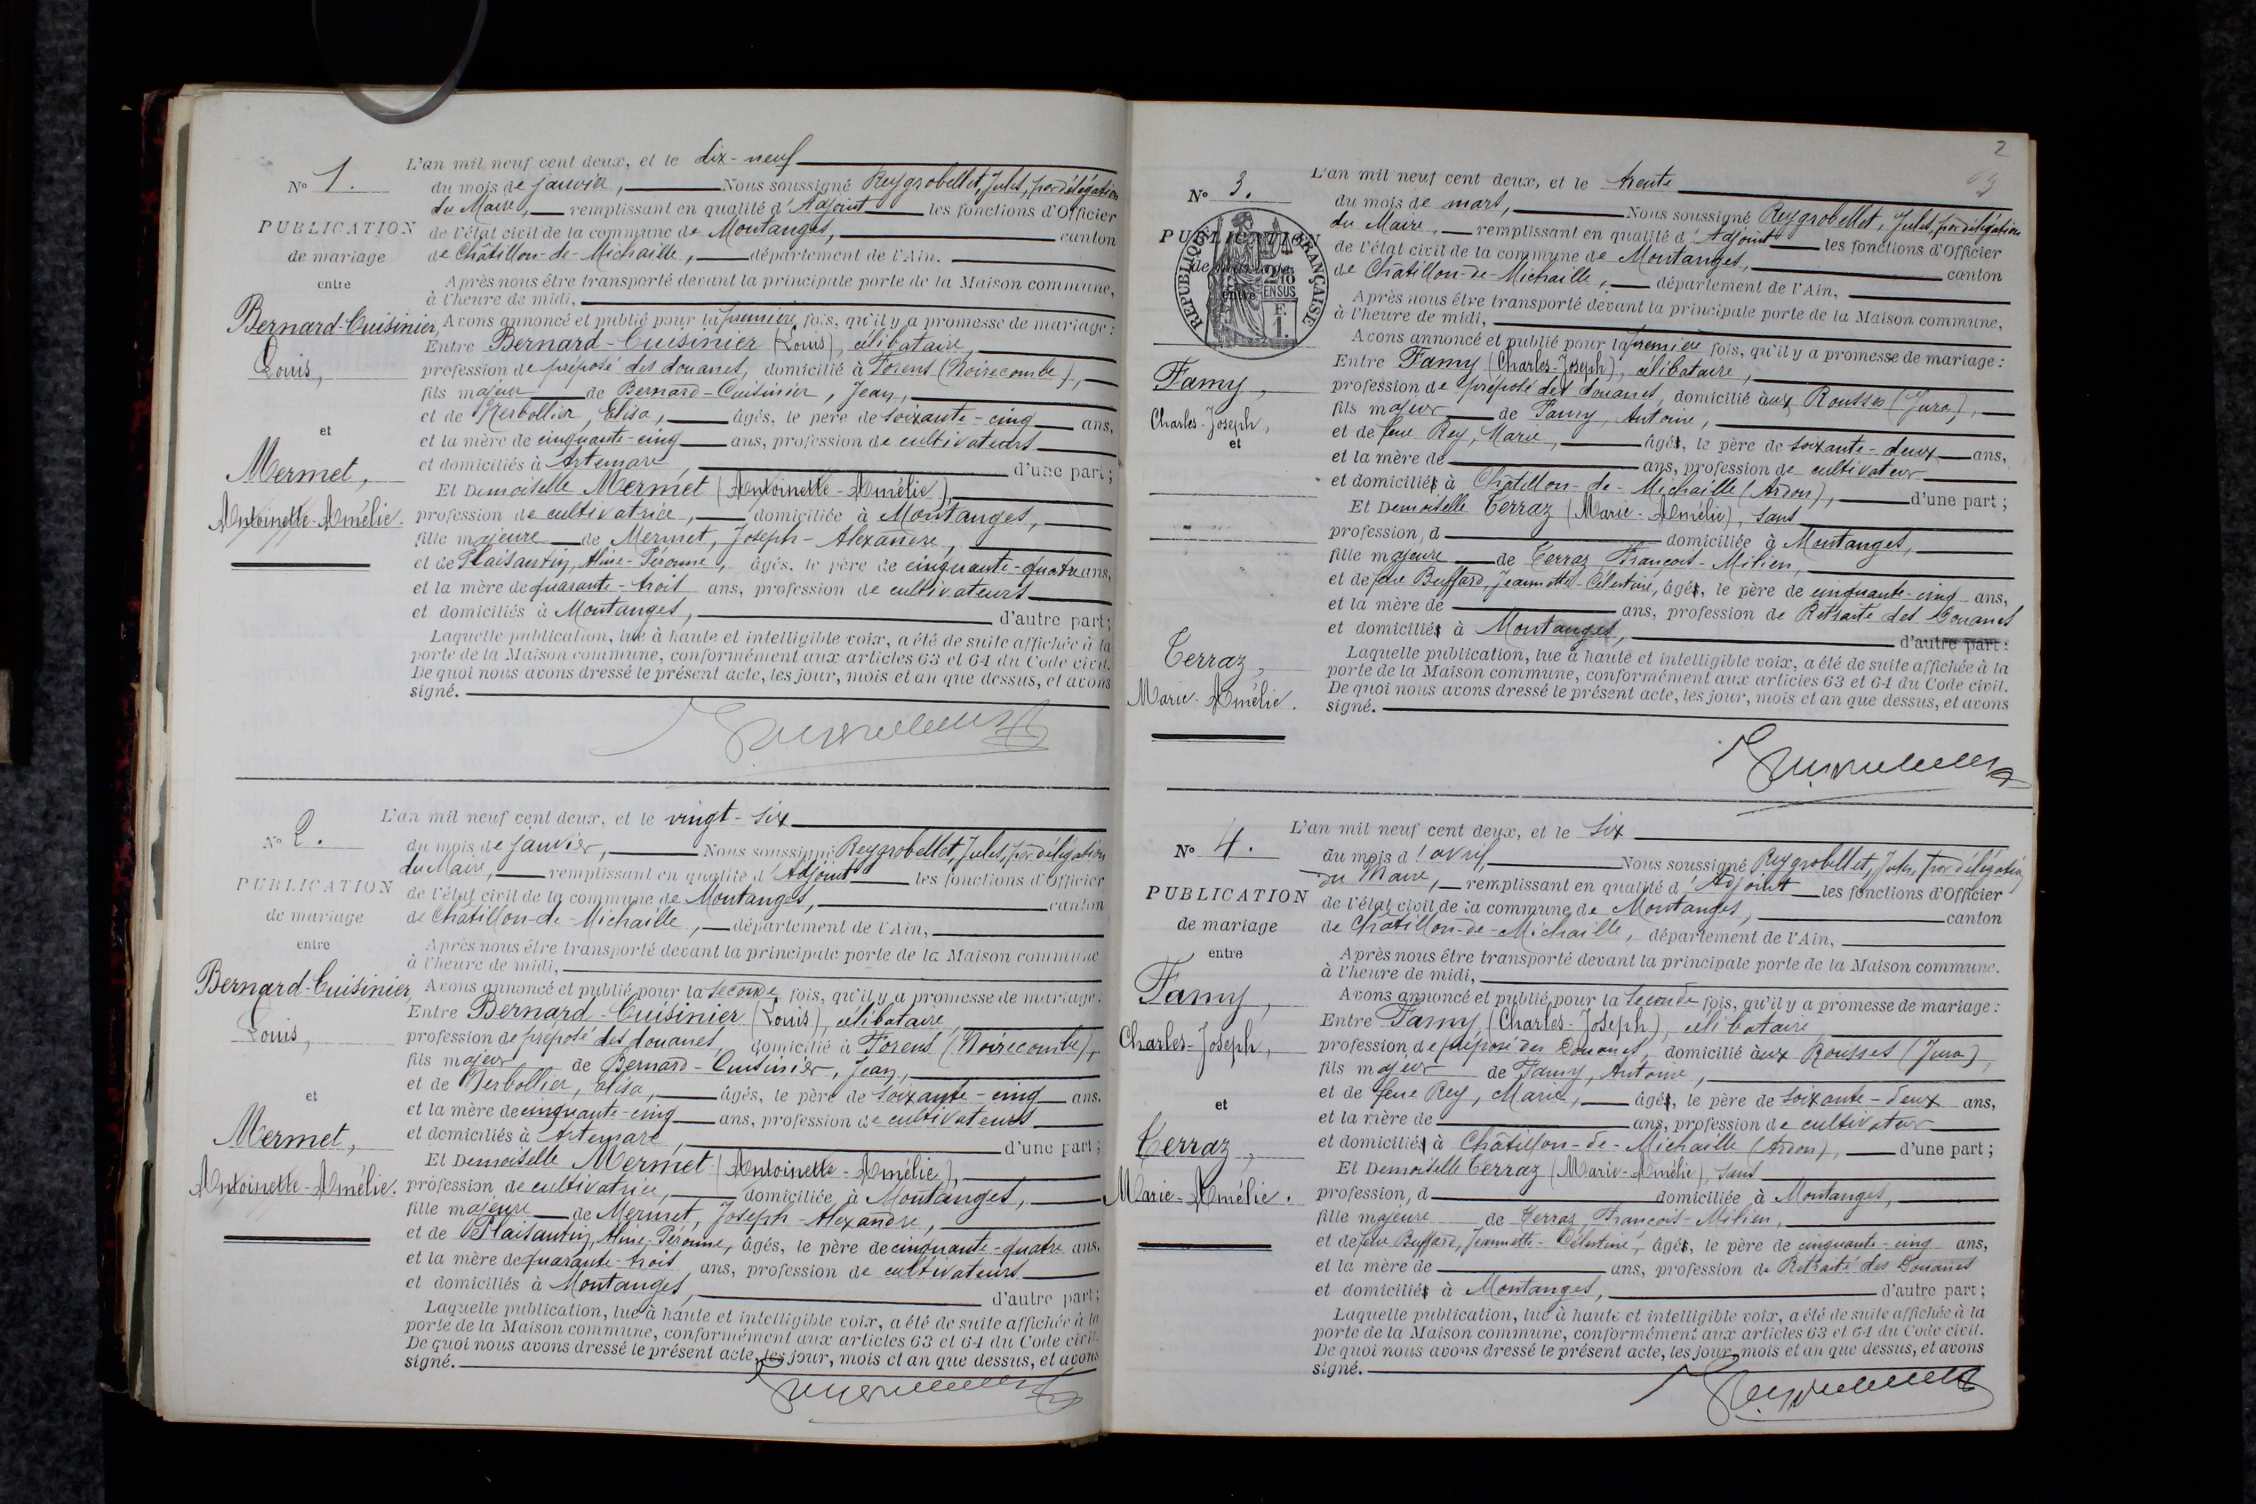 N° 1.
PUBLICATION
de mariage
entre
Bernard-Cuisinier,
Louis,
et
Mermet,
Antoinette-Amélie.
L'an mil neuf cent deux, et le dix-neuf
du mois de janvier, Nous soussigné Reygrobellet, Jules, par délégation
du Maire, remplissant en qualité d'Adjoint les fonctions d'Officier
de l'état civil de la commune de Montanges, canton
de Châtillon-de-Michaille, département de l'Ain,
Après nous être transporté devant la principale porte de la Maison commune,
à l'heure de midi,
Avons annoncé et publié pour la première fois, qu'il y a promesse de mariage :
Entre Bernard-Cuisinier (Louis), célibataire,
profession de préposé des douanes, domicilié à Forens (Noirecombe),
fils majeur de Bernard-Cuisinier, Jean,
et de Nerbollier, Elisa, âgés, le père de soixante-cinq ans,
et la mère de cinquante-cinq ans, profession de cultivateurs
et domiciliés à Artemare, d'une part ;
Et Demoiselle Mermet (Antoinette-Amélie),
profession de cultivatrice, domiciliée à Montanges,
fille majeure de Mermet, Joseph-Alexandre,
et de Plaisantin, Aline-Péronne, âgés, le père de cinquante-quatre ans,
et la mère de quarante-trois ans, profession de cultivateurs
et domiciliés à Montanges, d'autre part ;
Laquelle publication, lue à haute et intelligible voix, a été de suite affichée à la
porte de la Maison commune, conformément aux articles 63 et 64 du Code civil.
De quoi nous avons dressé le présent acte, les jour, mois et an que dessus, et avons
signé.
N° 2.
PUBLICATION
de mariage
entre
Bernard-Cuisinier,
Louis,
et
Mermet,
Antoinette-Amélie.
L'an mil neuf cent deux, et le vingt-six
du mois de janvier, Nous soussigné Reygrobellet, Jules, par délégation
du Maire, remplissant en qualité d'Adjoint les fonctions d'Officier
de l'état civil de la commune de Montanges, canton
de Châtillon-de-Michaille, département de l'Ain,
Après nous être transporté devant la principale porte de la Maison commune
à l'heure de midi,
Avons annoncé et publié pour la seconde fois, qu'il y a promesse de mariage :
Entre Bernard-Cuisinier (Louis), célibataire,
profession de préposé des douanes, domicilié à Forens (Noirecombe),
fils majeur de Bernard-Cuisinier, Jean,
et de Nerbollier, Elisa, âgés, le père de soixante-cinq ans,
et la mère de cinquante-cinq ans, profession de cultivateurs
et domiciliés à Artemare, d'une part ;
Et Demoiselle Mermet (Antoinette-Amélie),
profession de cultivatrice, domiciliée à Montanges,
fille majeure de Mermet, Joseph-Alexandre,
et de Plaisantin, Aline-Péronne, âgés, le père de cinquante-quatre ans,
et la mère de quarante-trois ans, profession de cultivateurs
et domiciliés à Montanges, d'autre part ;
Laquelle publication, lue à haute et intelligible voix, a été de suite affichée à la
porte de la Maison commune, conformément aux articles 63 et 64 du Code civil.
De quoi nous avons dressé le présent acte, les jour, mois et an que dessus, et avons
signé.
2
N° 3.
PUBLICATION
de mariage
entre
RÉPUBLIQUE FRANÇAISE
2/10
EN SUS
F.
1.
Famy,
Charles-Joseph,
et
Terraz,
Marie-Amélie.
L'an mil neuf cent deux, et le trente
du mois de mars, Nous soussigné Reygrobellet, Jules, par délégation
du Maire, remplissant en qualité d'Adjoint les fonctions d'Officier
de l'état civil de la commune de Montanges, canton
de Châtillon-de-Michaille, département de l'Ain,
Après nous être transporté devant la principale porte de la Maison commune,
à l'heure de midi,
Avons annoncé et publié pour la première fois, qu'il y a promesse de mariage :
Entre Famy (Charles-Joseph), célibataire,
profession de préposé des douanes, domicilié aux Rousses (Jura),
fils majeur de Famy, Antoine,
et de feue Rey, Marie, âgé, le père de soixante-deux ans,
et la mère de ans, profession de cultivateur
et domicilié à Châtillon-de-Michaille (Ardon), d'une part ;
Et Demoiselle Terraz (Marie-Amélie), sans
profession, d domiciliée à Montanges,
fille majeure de Terraz, François-Milien,
et de feue Buffard, Jeannette-Célestine, âgé, le père de cinquante-cinq ans,
et la mère de ans, profession de Retraité des Douanes
et domicilié à Montanges, d'autre part :
Laquelle publication, lue à haute et intelligible voix, a été de suite affichée à la
porte de la Maison commune, conformément aux articles 63 et 64 du Code civil.
De quoi nous avons dressé le présent acte, les jour, mois et an que dessus, et avons
signé.
N° 4.
PUBLICATION
de mariage
entre
Famy,
Charles-Joseph,
et
Terraz,
Marie-Amélie.
L'an mil neuf cent deux, et le six
du mois d'avril, Nous soussigné Reygrobellet, Jules, par délégation
du Maire, remplissant en qualité d'Adjoint les fonctions d'Officier
de l'état civil de la commune de Montanges, canton
de Châtillon-de-Michaille, département de l'Ain,
Après nous être transporté devant la principale porte de la Maison commune.
à l'heure de midi,
Avons annoncé et publié pour la seconde fois, qu'il y a promesse de mariage :
Entre Famy (Charles-Joseph), célibataire
profession de préposé des Douanes, domicilié aux Rousses (Jura),
fils majeur de Famy, Antoine,
et de feue Rey, Marie, âgé, le père de soixante-deux ans,
et la mère de ans, profession de cultivateur
et domicilié à Châtillon-de-Michaille (Ardon), d'une part ;
Et Demoiselle Terraz (Marie-Amélie), sans
profession, d domiciliée à Montanges,
fille majeure de Terraz, François-Milien,
et de feue Buffard, Jeannette-Célestine, âgé, le père de cinquante-cinq ans,
et la mère de ans, profession de Retraité des Douanes
et domicilié à Montanges, d'autre part ;
Laquelle publication, lue à haute et intelligible voix, a été de suite affichée à la
porte de la Maison commune, conformément aux articles 63 et 64 du Code civil.
De quoi nous avons dressé le présent acte, les jour, mois et an que dessus, et avons
signé.